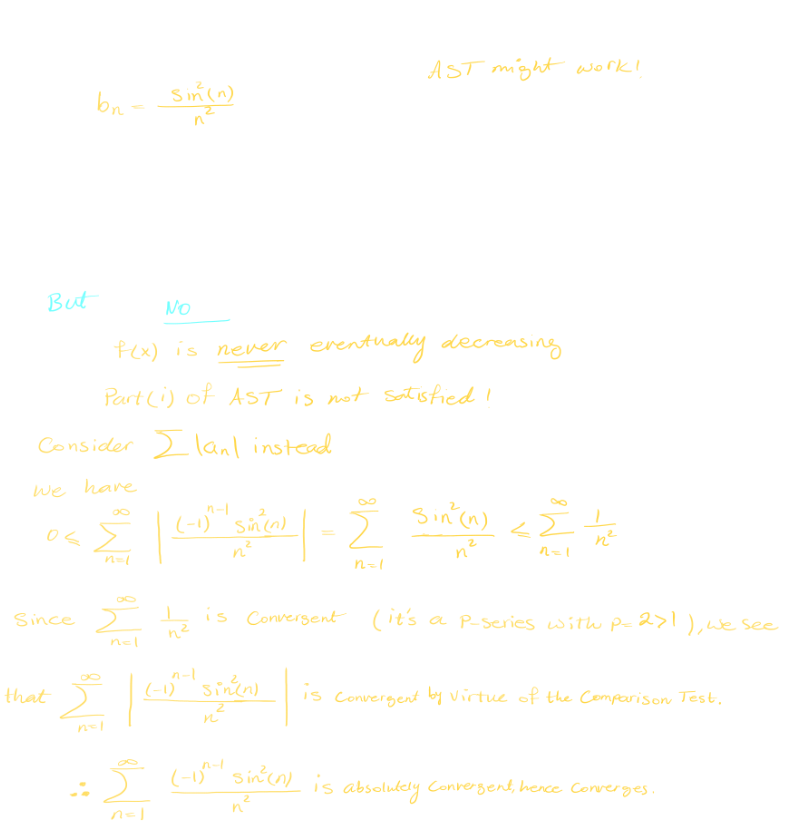 AST might work!
bn = sin²(n)/n²
But No
f(x) is never eventually decreasing
Part(i) of AST is not satisfied!
Consider ∑|an| instead
we have
0 ≤ ∑_{n=1}^{∞} |(-1)^{n-1} sin²(n)/n²| = ∑_{n=1}^{∞} sin²(n)/n² ≤ ∑_{n=1}^{∞} 1/n²
Since ∑_{n=1}^{∞} 1/n² is Convergent (it's a P-series with p=2>1), we see
that ∑_{n=1}^{∞} |(-1)^{n-1} sin²(n)/n²| is convergent by virtue of the Comparison Test.
∴ ∑_{n=1}^{∞} (-1)^{n-1} sin²(n)/n² is absolutely convergent, hence converges.